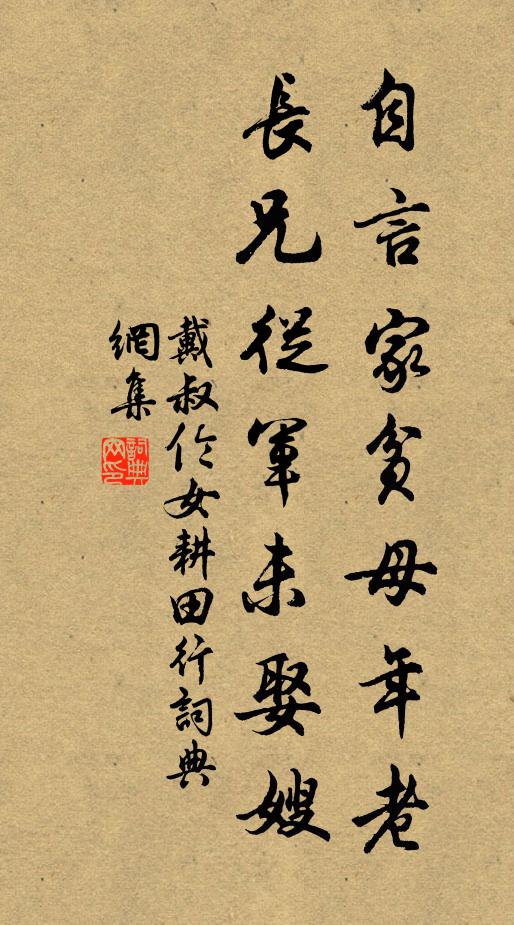 自言家貧母年老
長兄從軍未娶嫂
戴叔伦女耕田行詞典
網集
詞典
网印